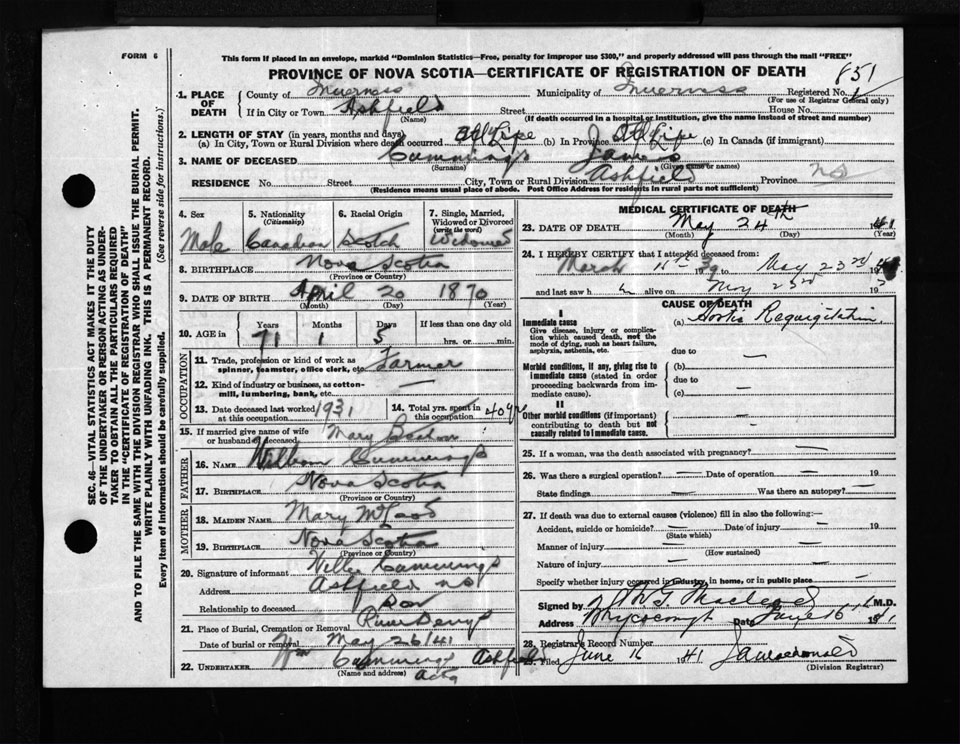 FORM 6
This form if placed in an envelope, marked "Dominion Statistics—Free, penalty for improper use $300," and properly addressed will pass through the mail "FREE"
PROVINCE OF NOVA SCOTIA—CERTIFICATE OF REGISTRATION OF DEATH
851
1. PLACE OF DEATH
County of Inverness Municipality of Inverness Registered No.
(For use of Registrar General only)
If in City or Town Ashfield Street House No.
(Name) (If death occurred in a hospital or institution, give the name instead of street and number)
2. LENGTH OF STAY (in years, months and days)
(a) In City, Town or Rural Division where death occurred All Life (b) In Province All Life (c) In Canada (if immigrant)
3. NAME OF DECEASED Cummings James
(Surname) (Given name or names)
RESIDENCE No. Street City, Town or Rural Division Ashfield Province NS
(Residence means usual place of abode. Post Office Address for residents in rural parts not sufficient)
4. Sex Male
5. Nationality (Citizenship) Canadian
6. Racial Origin Scotch
7. Single, Married, Widowed or Divorced (write the word) Widowed
8. BIRTHPLACE Nova Scotia
(Province or Country)
9. DATE OF BIRTH April 20 1870
(Month) (Day) (Year)
10. AGE in Years Months Days If less than one day old
71 1 5 hrs. or min.
OCCUPATION
11. Trade, profession or kind of work as spinner, teamster, office clerk, etc. Farmer
12. Kind of industry or business, as cotton-mill, lumbering, bank, etc. —
13. Date deceased last worked at this occupation 1931
14. Total yrs. spent in this occupation 40
15. If married give name of wife or husband of deceased Mary
FATHER
16. NAME William Cummings
17. BIRTHPLACE Nova Scotia
(Province or Country)
MOTHER
18. MAIDEN NAME Mary
19. BIRTHPLACE Nova Scotia
(Province or Country)
20. Signature of informant Cummings
Address Ashfield NS
Relationship to deceased Son
21. Place of Burial, Cremation or Removal River Denys
Date of burial or removal May 26/41
22. UNDERTAKER Wm Cummings Ashfield
(Name and address)
MEDICAL CERTIFICATE OF DEATH
23. DATE OF DEATH May 24th 1941
(Month) (Day) (Year)
24. I HEREBY CERTIFY that I attended deceased from:
March 11th 39 to May 23rd 19
and last saw h alive on May 23rd 19
CAUSE OF DEATH
I
Immediate cause
Give disease, injury or complication which caused death, not the mode of dying, such as heart failure, asphyxia, asthenia, etc.
(a) Aortic Regurgitation
due to —
Morbid conditions, if any, giving rise to immediate cause (stated in order proceeding backwards from immediate cause).
(b) —
due to
(c) —
II
Other morbid conditions (if important) contributing to death but not causally related to immediate cause.
25. If a woman, was the death associated with pregnancy? —
26. Was there a surgical operation? — Date of operation — 19
State findings — Was there an autopsy? —
27. If death was due to external causes (violence) fill in also the following:—
Accident, suicide or homicide? — Date of injury — 19
(State which)
Manner of injury —
(How sustained)
Nature of injury —
Specify whether injury occurred in industry, in home, or in public place —
Signed by MacLeod M.D.
Address Whycocomagh Date June 16th 1941
28. Registrar's Record Number
29. Filed June 16 1941 J A Macdonald
(Division Registrar)
SEC. 46—VITAL STATISTICS ACT MAKES IT THE DUTY OF THE UNDERTAKER OR PERSON ACTING AS UNDERTAKER TO OBTAIN ALL THE PARTICULARS REQUIRED IN THE "CERTIFICATE OF REGISTRATION OF DEATH"
AND TO FILE THE SAME WITH THE DIVISION REGISTRAR WHO SHALL ISSUE THE BURIAL PERMIT.
WRITE PLAINLY WITH UNFADING INK. THIS IS A PERMANENT RECORD.
Every item of information should be carefully supplied. (See reverse side for instructions.)